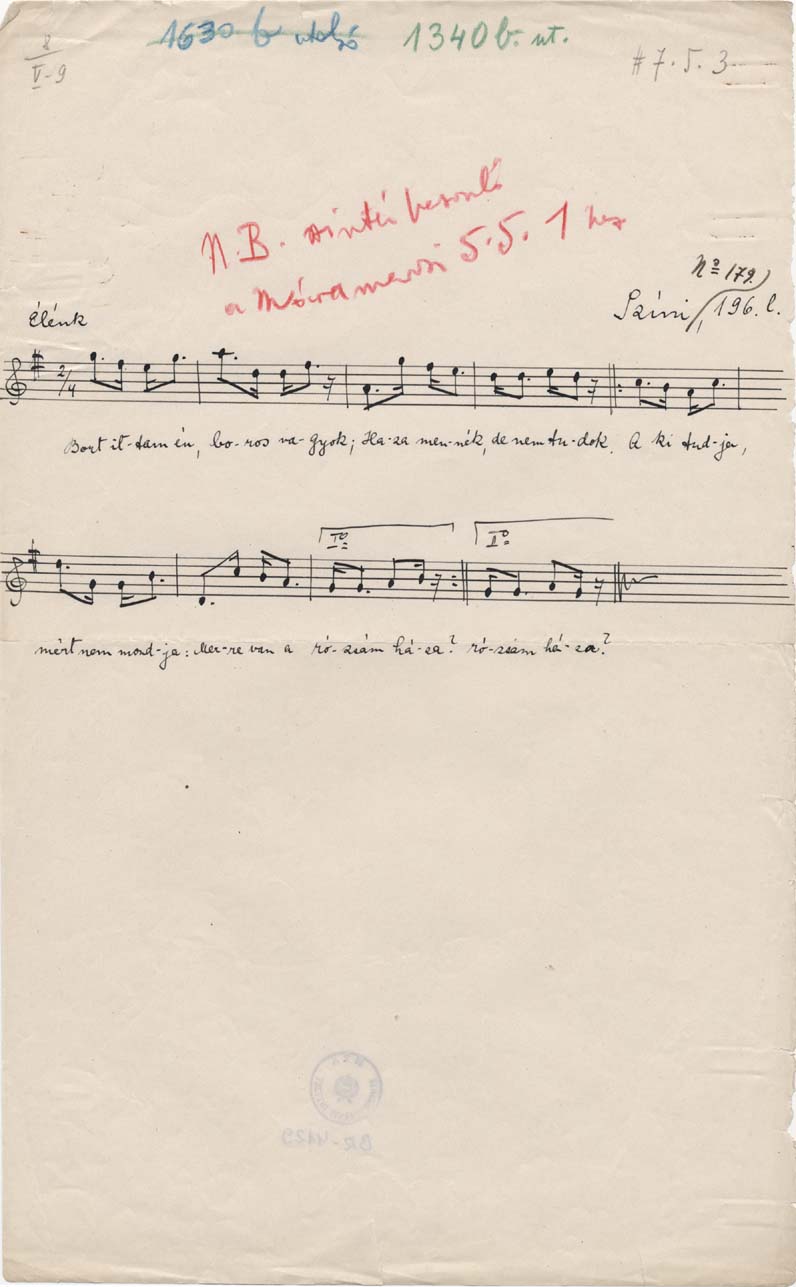 1630 b utolsó 1340 b. ut.
8
V-9
# 7.5.3
N.B. szintén hasonló
a 5.5.1 hez
No 179.
Élénk
Színi, 196. l.
2/4
Bort it-tam én, bo-ros va-gyok; Ha-za men-nék, de nem tu-dok. A ki tud-ja,
Io IIo
mért nem mond-ja: Mer-re van a ró-zsám há-za? ró-zsám há-za?
BR-4129